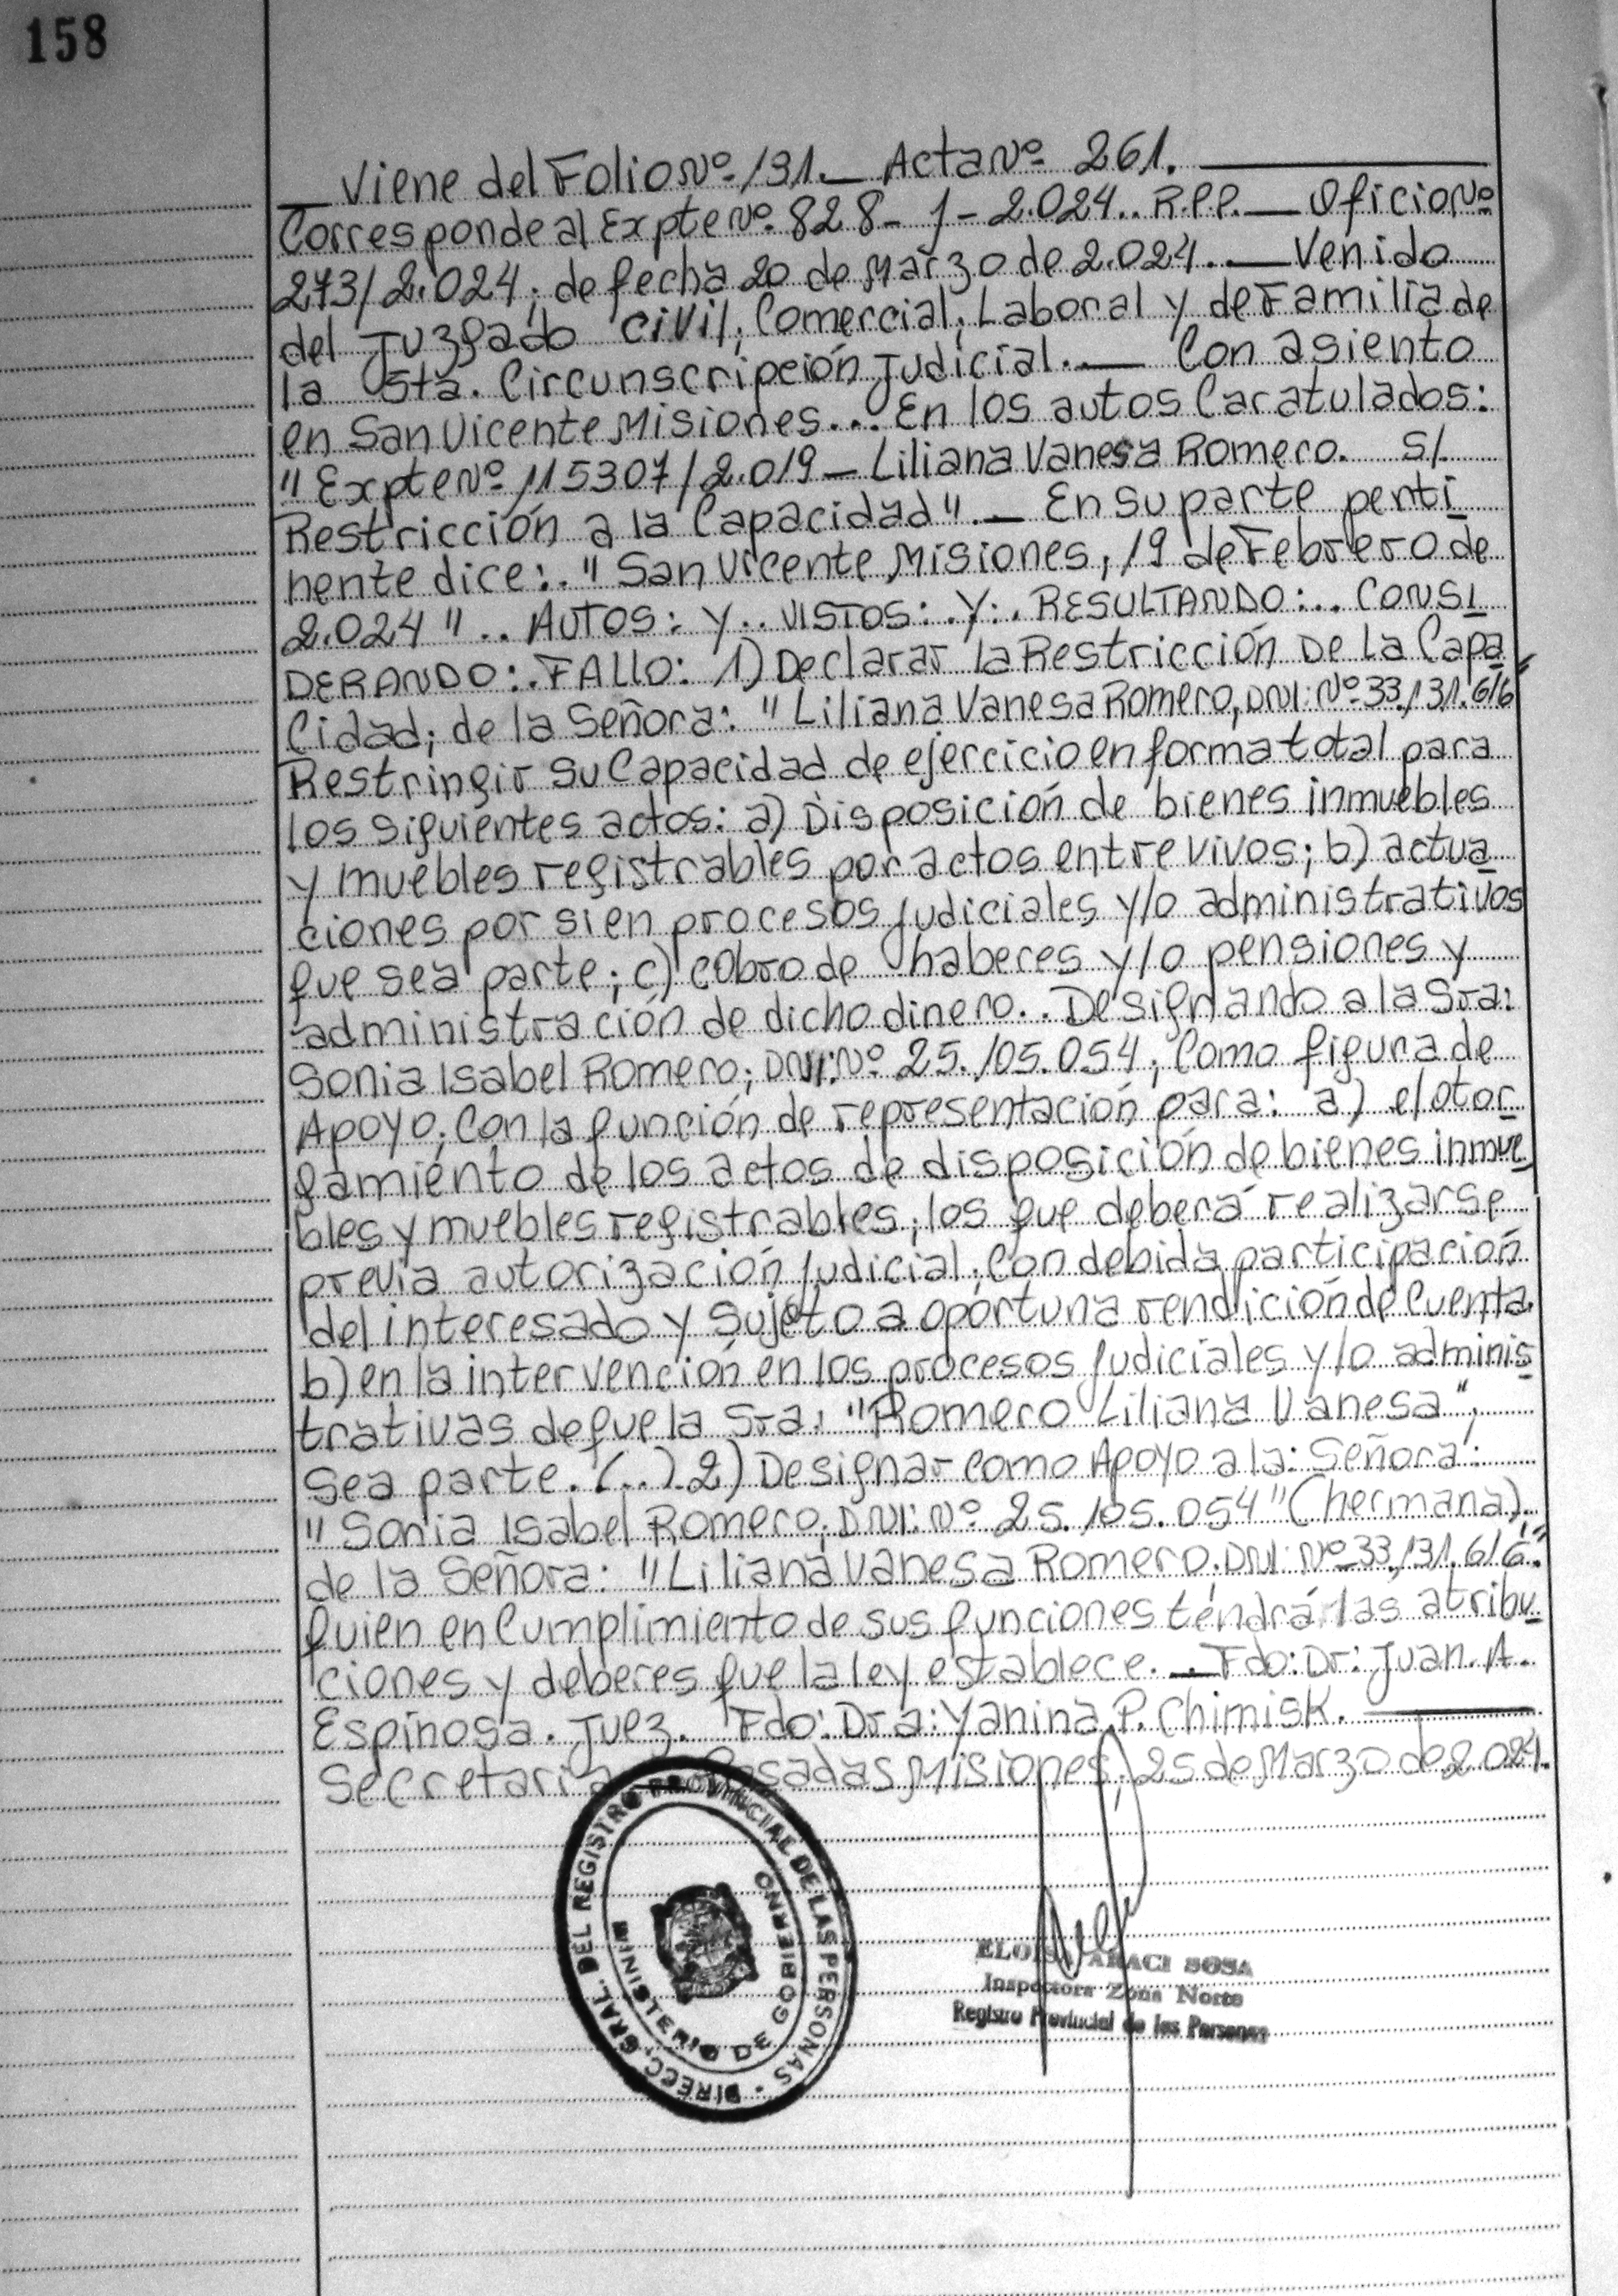 158
Viene del Folio Nº 131. — Acta Nº 261.
Corresponde al Expte Nº 828 - 1 - 2.024.. R.P.P. — Oficio Nº
273/2.024; de fecha 20 de Marzo de 2.024.. — Venido
del Juzgado Civil; Comercial; Laboral y de Familia de
la 5ta. Circunscripción Judicial. — Con asiento
en San Vicente Misiones... En los autos Caratulados:
"Expte Nº 115307/2.019 — Liliana Vanesa Romero. S/.
Restricción a la Capacidad". — En su parte perti
nente dice:. "San Vicente Misiones, 19 de Febrero de
2.024".. AUTOS: Y.. VISTOS:. Y:. RESULTANDO:.. CONSI
DERANDO:. FALLO: 1) Declarar la Restricción De La Capa
Cidad; de la Señora: "Liliana Vanesa Romero, DNI: Nº 33.131.616"
Restringir su Capacidad de ejercicio en forma total para
los siguientes actos: a) Disposición de bienes inmuebles
y muebles registrables por actos entre vivos; b) actua
ciones por si en procesos judiciales y/o administrativos
que sea parte; c) cobro de haberes y/o pensiones y
administración de dicho dinero.. Designando a la Sra:
Sonia Isabel Romero; DNI: Nº 25.105.054; Como figura de
Apoyo; Con la función de representación para: a) el otor
gamiento de los actos de disposición de bienes inmue
bles y muebles registrables; los que deberá realizarse
previa autorización judicial; Con debida participación
del interesado y sujeto a oportuna rendición de Cuenta.
b) en la intervención en los procesos judiciales y/o adminis
trativas de que la Sra: "Romero Liliana Vanesa";
sea parte. (..). 2) Designar como Apoyo a la: Señora:
"Sonia Isabel Romero; DNI: Nº 25.105.054" (hermana).
de la Señora: "Liliana Vanesa Romero. DNI: Nº 33.131.616".
Quien en Cumplimiento de sus funciones tendrá las atribu
ciones y deberes que la ley establece. — Fdo: Dr: Juan. A.
Espinosa. Juez. Fdo: Dra: Yanina P. Chimisk. —
Secretaria Posadas Misiones, 25 de Marzo de 2.024.
DIRECC. GRAL. DEL REGISTRO PROVINCIAL DE LAS PERSONAS
MINISTERIO DE GOBIERNO
ARACI SOSA
Inspectora Zona Norte
Registro Provincial de las Personas